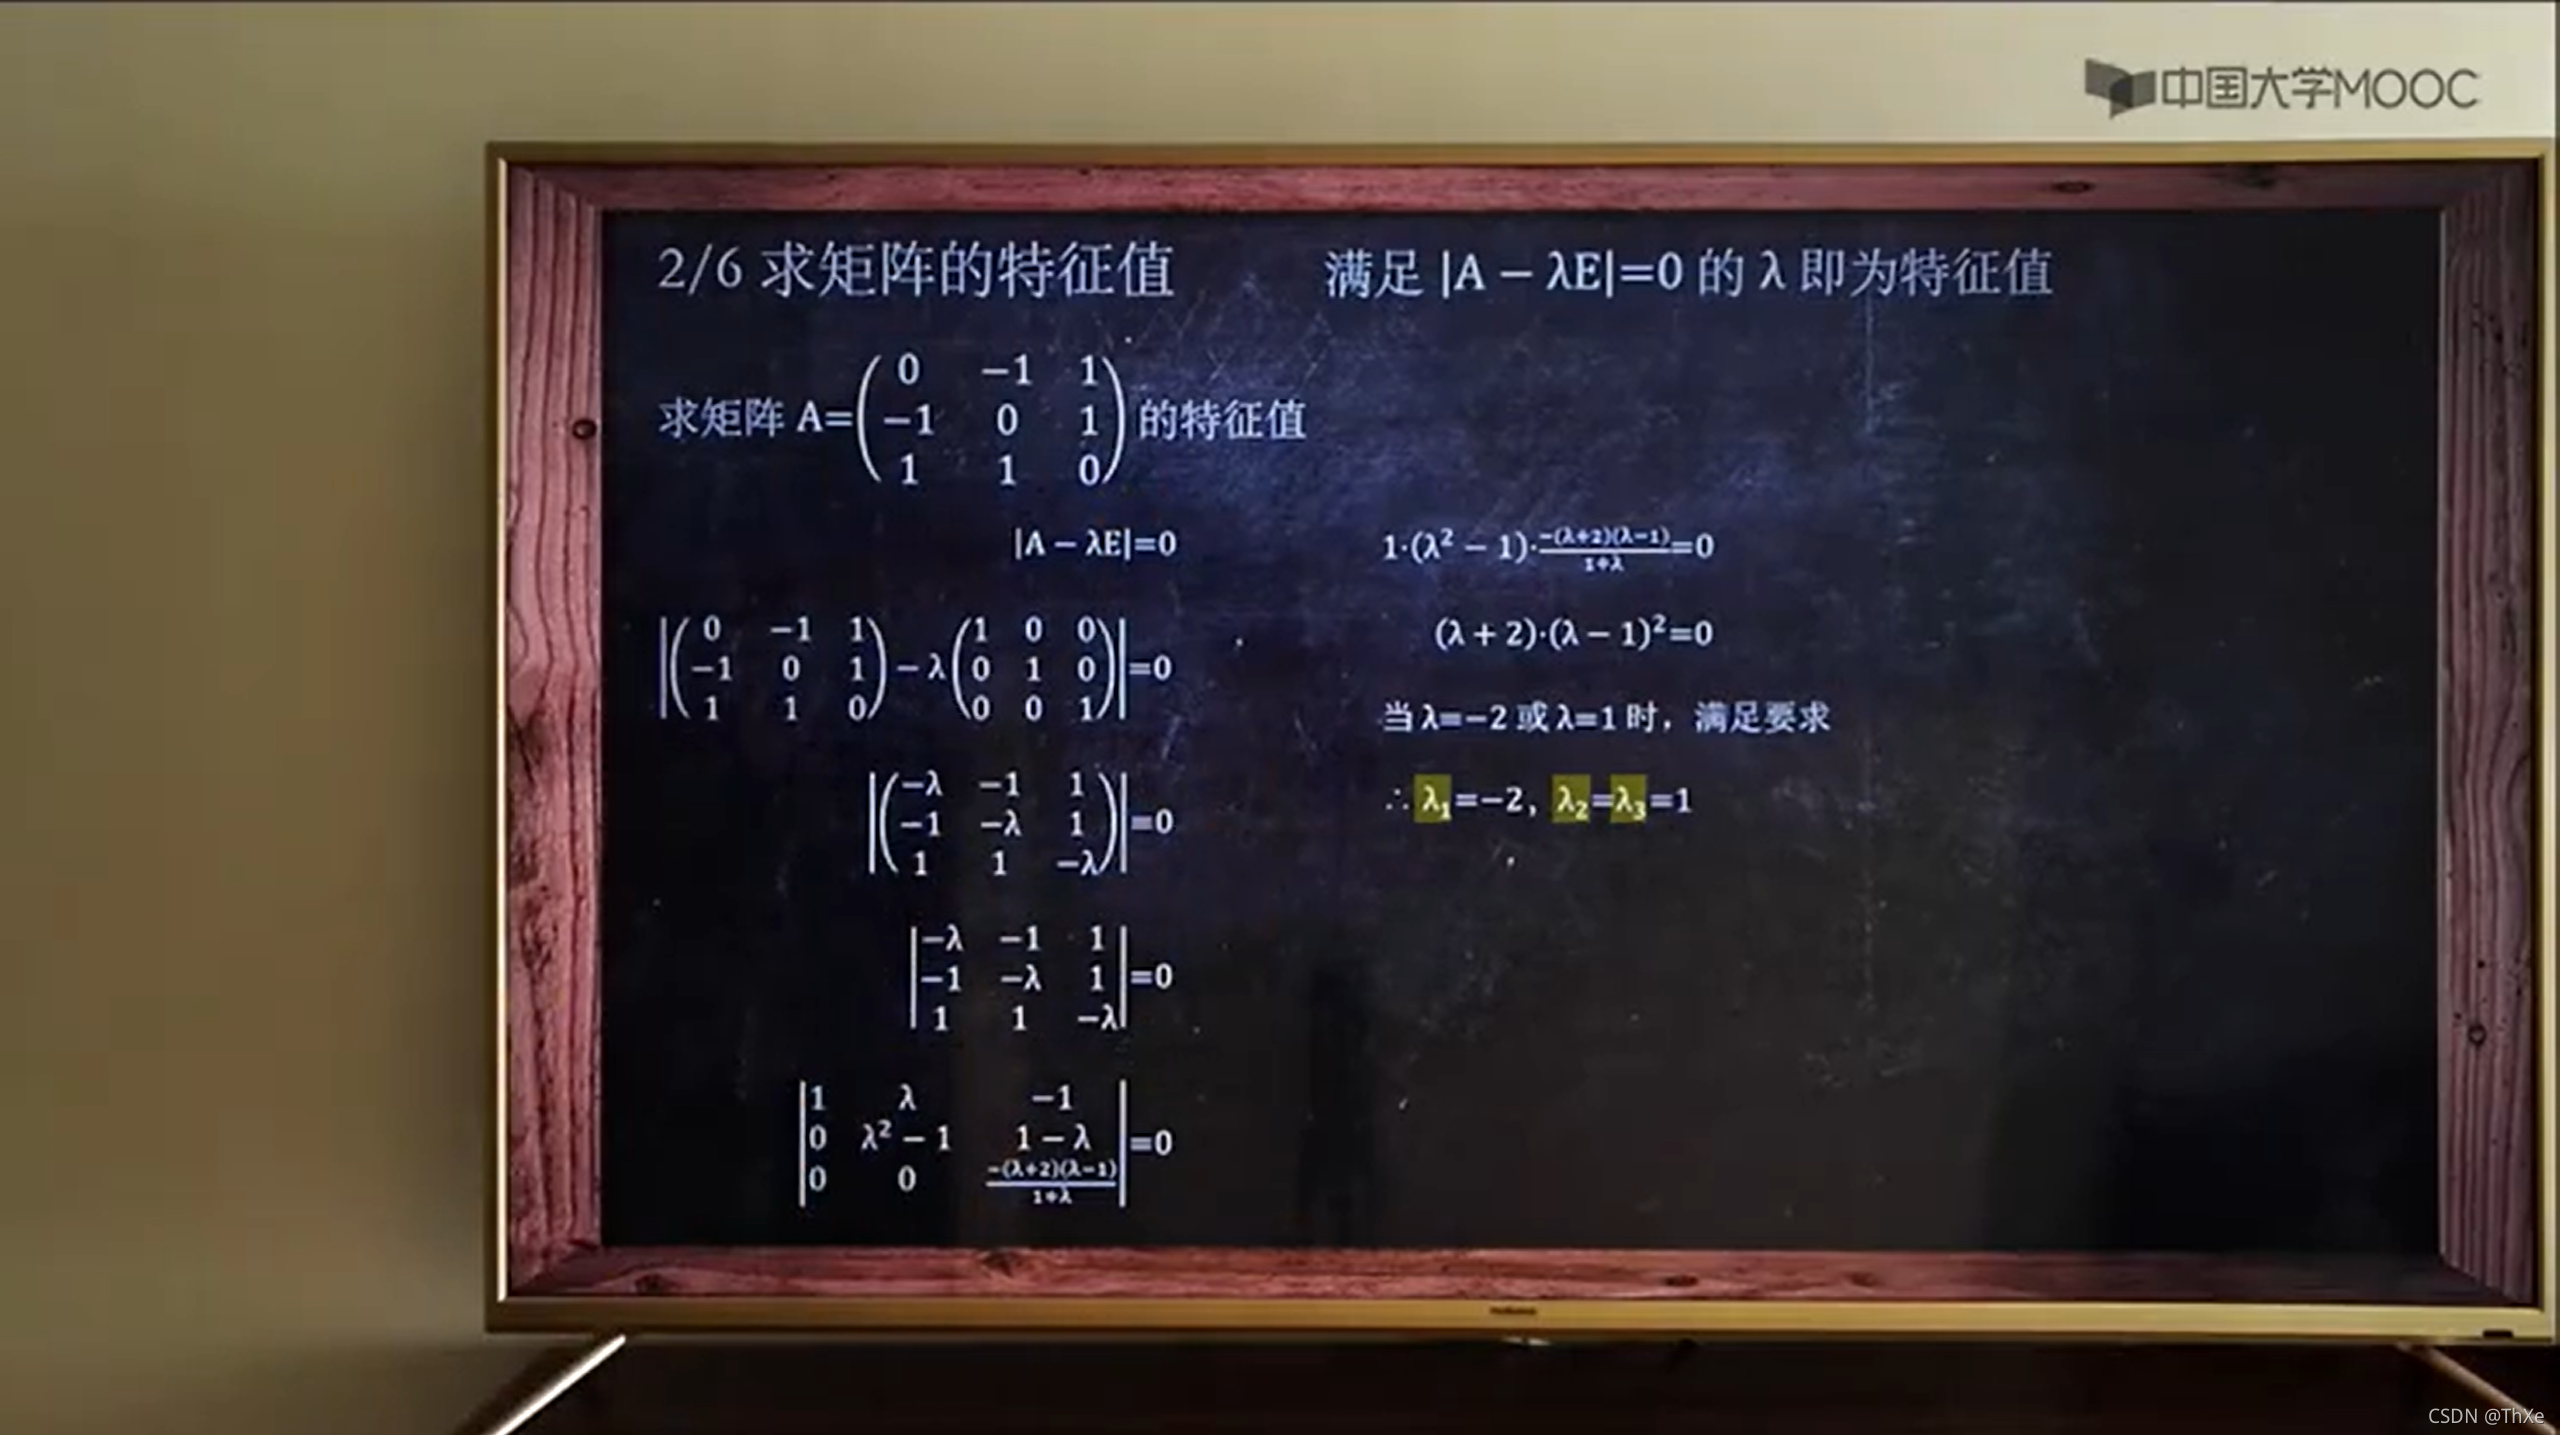 中国大学MOOC
2/6 求矩阵的特征值
满足 |A − λE|=0 的 λ 即为特征值
0 −1 1
求矩阵 A=( −1 0 1 )的特征值
1 1 0
|A − λE|=0
|( 0 −1 1 ) ( 1 0 0 )|
|( −1 0 1 ) − λ ( 0 1 0 )|=0
|( 1 1 0 ) ( 0 0 1 )|
|( −λ −1 1 )|
|( −1 −λ 1 )|=0
|( 1 1 −λ )|
| −λ −1 1 |
| −1 −λ 1 |=0
| 1 1 −λ |
| 1 λ −1 |
| 0 λ² − 1 1 − λ |=0
| 0 0 −(λ+2)(λ−1)/1+λ |
1·(λ² − 1)·−(λ+2)(λ−1)/1+λ=0
(λ + 2)·(λ − 1)²=0
当 λ=−2 或 λ=1 时，满足要求
∴ λ₁=−2, λ₂=λ₃=1
CSDN @ThXe